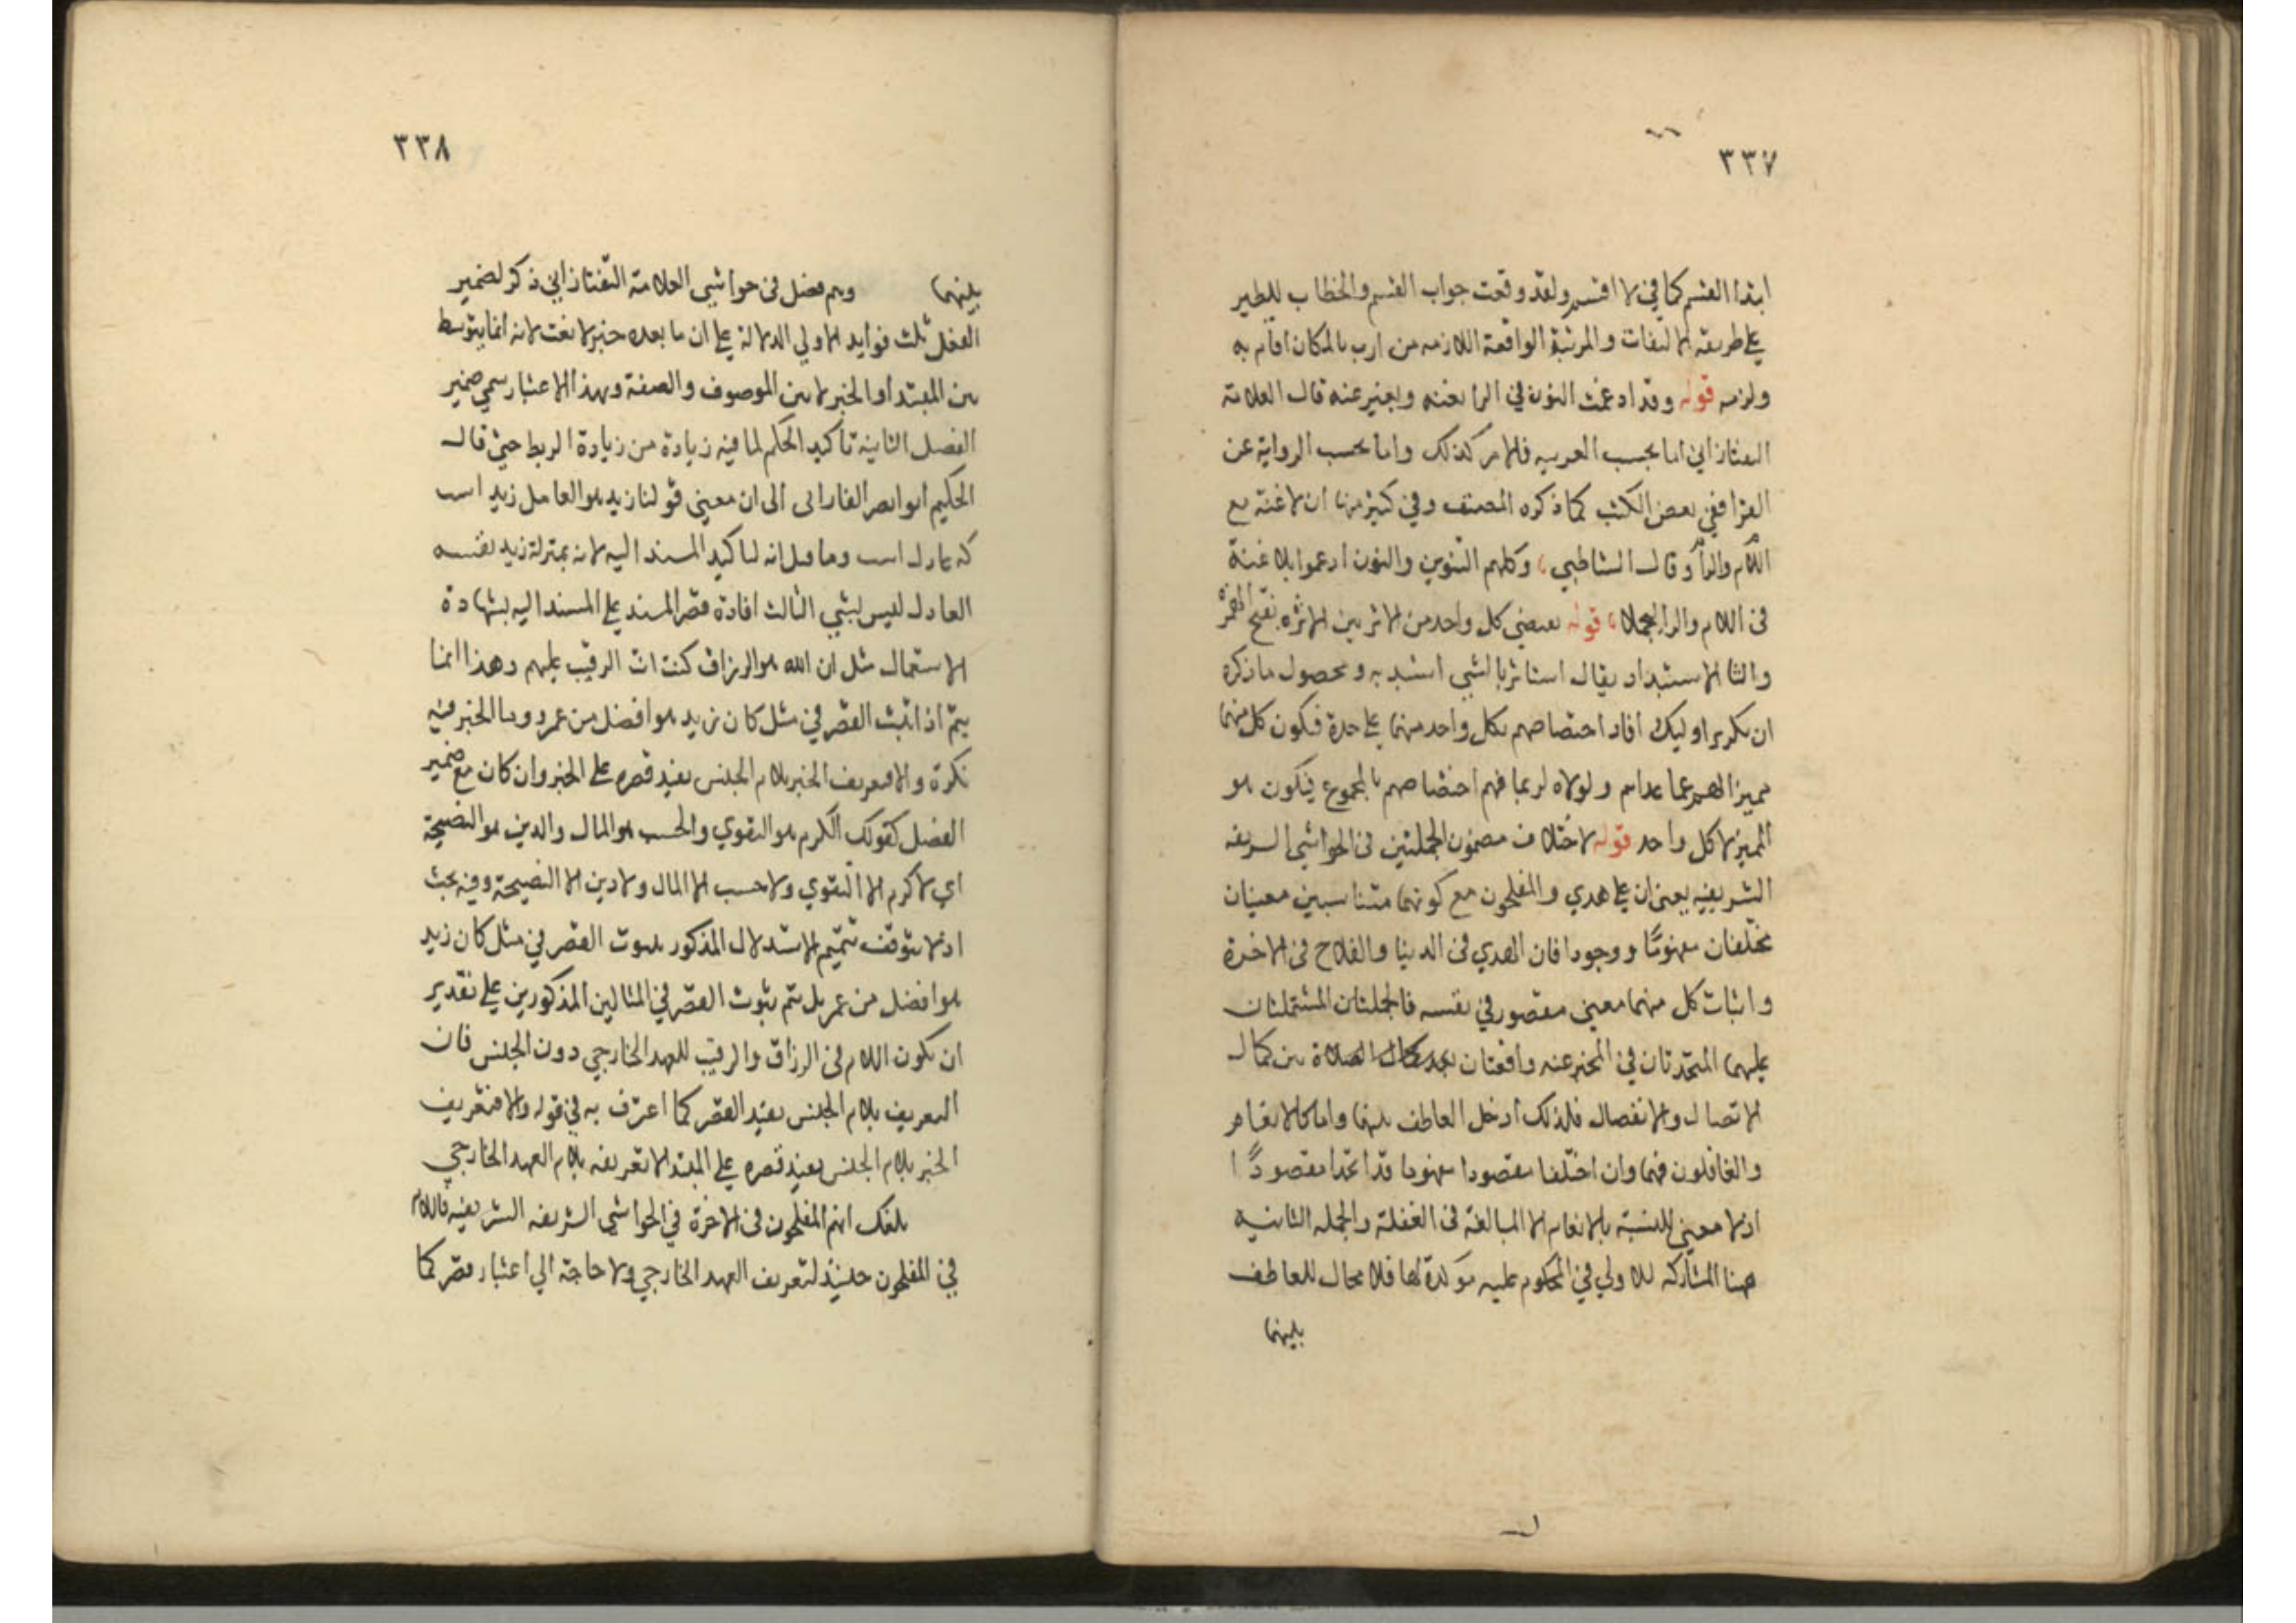 ٣٣٧
ابتدا القسم كما في لا اقسم ولقد وقعت جواب القسم والخطاب للطير
على طريقة الالتفات والمرتبة الواقعة اللازمه من ارب بالمكان اقام به
ولزمه قوله وقد ادغمت النون في الرا بغنه وبغير عنه قال العلامة
التفتازاني اما بحسب العربيه فالامر كذلك واما بحسب الرواية عن
القرا ففي بعض الكتب كما ذكره المصنف وفي كثير منها ان لا غنة مع
اللام والرا وقال الشاطبي وكلهم التنوين والنون ادغموا بلا غنة
في اللام والرا ليجملا قوله بعضي كل واحد من الاثرين الاثره بفتح الهمزة
والثا الاستبداد يقال استاثر بالشي استبد به ومحصول ما ذكره
ان تكرير اوليك افاد اختصاصهم بكل واحد منهما على حدة فيكون كل منهما
مميزا لهم عما عداهم ولولاه لربما فهم اختصاصهم بالمجموع فيكون هو
المميز لا كل واحد قوله لاختلاف مضمون الجملتين في الحواشي الشريفه
الشريفيه يعني ان على هدي والمفلحون مع كونهما متناسبين معنيان
مختلفان مفهومًا ووجودا فان الهدي في الدنيا والفلاح في الاخرة
واثبات كل منهما معني مقصور في نفسه فالجملتان المشتملتان
عليهما المتحدتان في المخبر عنه واقعتان بين كمال
الاتصال والانفصال فلذلك ادخل العاطف بينهما واما كالانعام
والغافلون فهما وان اختلفا مفهوما قد اتحدا مقصودًا
اذ لا معني للنسبة بالانعام الا المبالغة في الغفلة والجمله الثانيه
هنا المشاركه للاولي في المحكوم عليه موكدة لها فلا مجال للعاطف
بينهما
٣٣٨
بينهما وهم فصل في حواشي العلامة التفتازاني ذكر لضمير
الفصل ثلث فوايد الاولي الدلالة على ان ما بعده خبر لا نعت لانه انما يتوسط
بين المبتدا والخبر لا بين الموصوف والصفة وبهذا الاعتبار سمي ضمير
الفصل الثانية تاكيد الحكم لما فيه زيادة من زيادة الربط حتي قال
الحكيم ابو نصر الفارابي الى ان معني قولنا زيد هو العامل زيد است
كه عادل است وما قيل انه لتاكيد المسند اليه لانه بمنزلة زيد نفسه
العادل ليس بشي الثالث افادة قصر المسند على المسند اليه بشهادة
الاستعمال مثل ان الله هو الرزاق كنت انت الرقيب عليهم وهذا انما
يتم اذا ثبت القصر في مثل كان زيد هو افضل من عمرو وما الخبر فيه
نكرة والا فتعريف الخبر بلام الجنس يفيد قصره على الخبر وان كان مع ضمير
الفصل كقولك الكرم هو التقوي والحسب هو المال والدين هو النصيحة
اي لا كرم الا التقوي ولا حسب الا المال ولا دين الا النصيحة وفيه بحث
اذ لا يتوقف تتميم الاستدلال المذكور بثبوت القصر في مثل كان زيد
هو افضل من عمر بل يتم بثبوت القصر في المثالين المذكورين على تقدير
ان يكون اللام في الرزاق والرقيب للعهد الخارجي دون الجنس فان
التعريف بلام الجنس يفيد القصر كما اعترف به في قوله والا فتعريف
الخبر بلام الجنس يفيد قصره على المبتدا لا تعريفه بلام العهد الخارجي
بلغك انهم المفلحون في الاخرة في الحواشي الشريفه الشريفيه فاللام
في المفلحون حينئذ لتعريف العهد الخارجي ولا حاجة الي اعتبار قصر كما